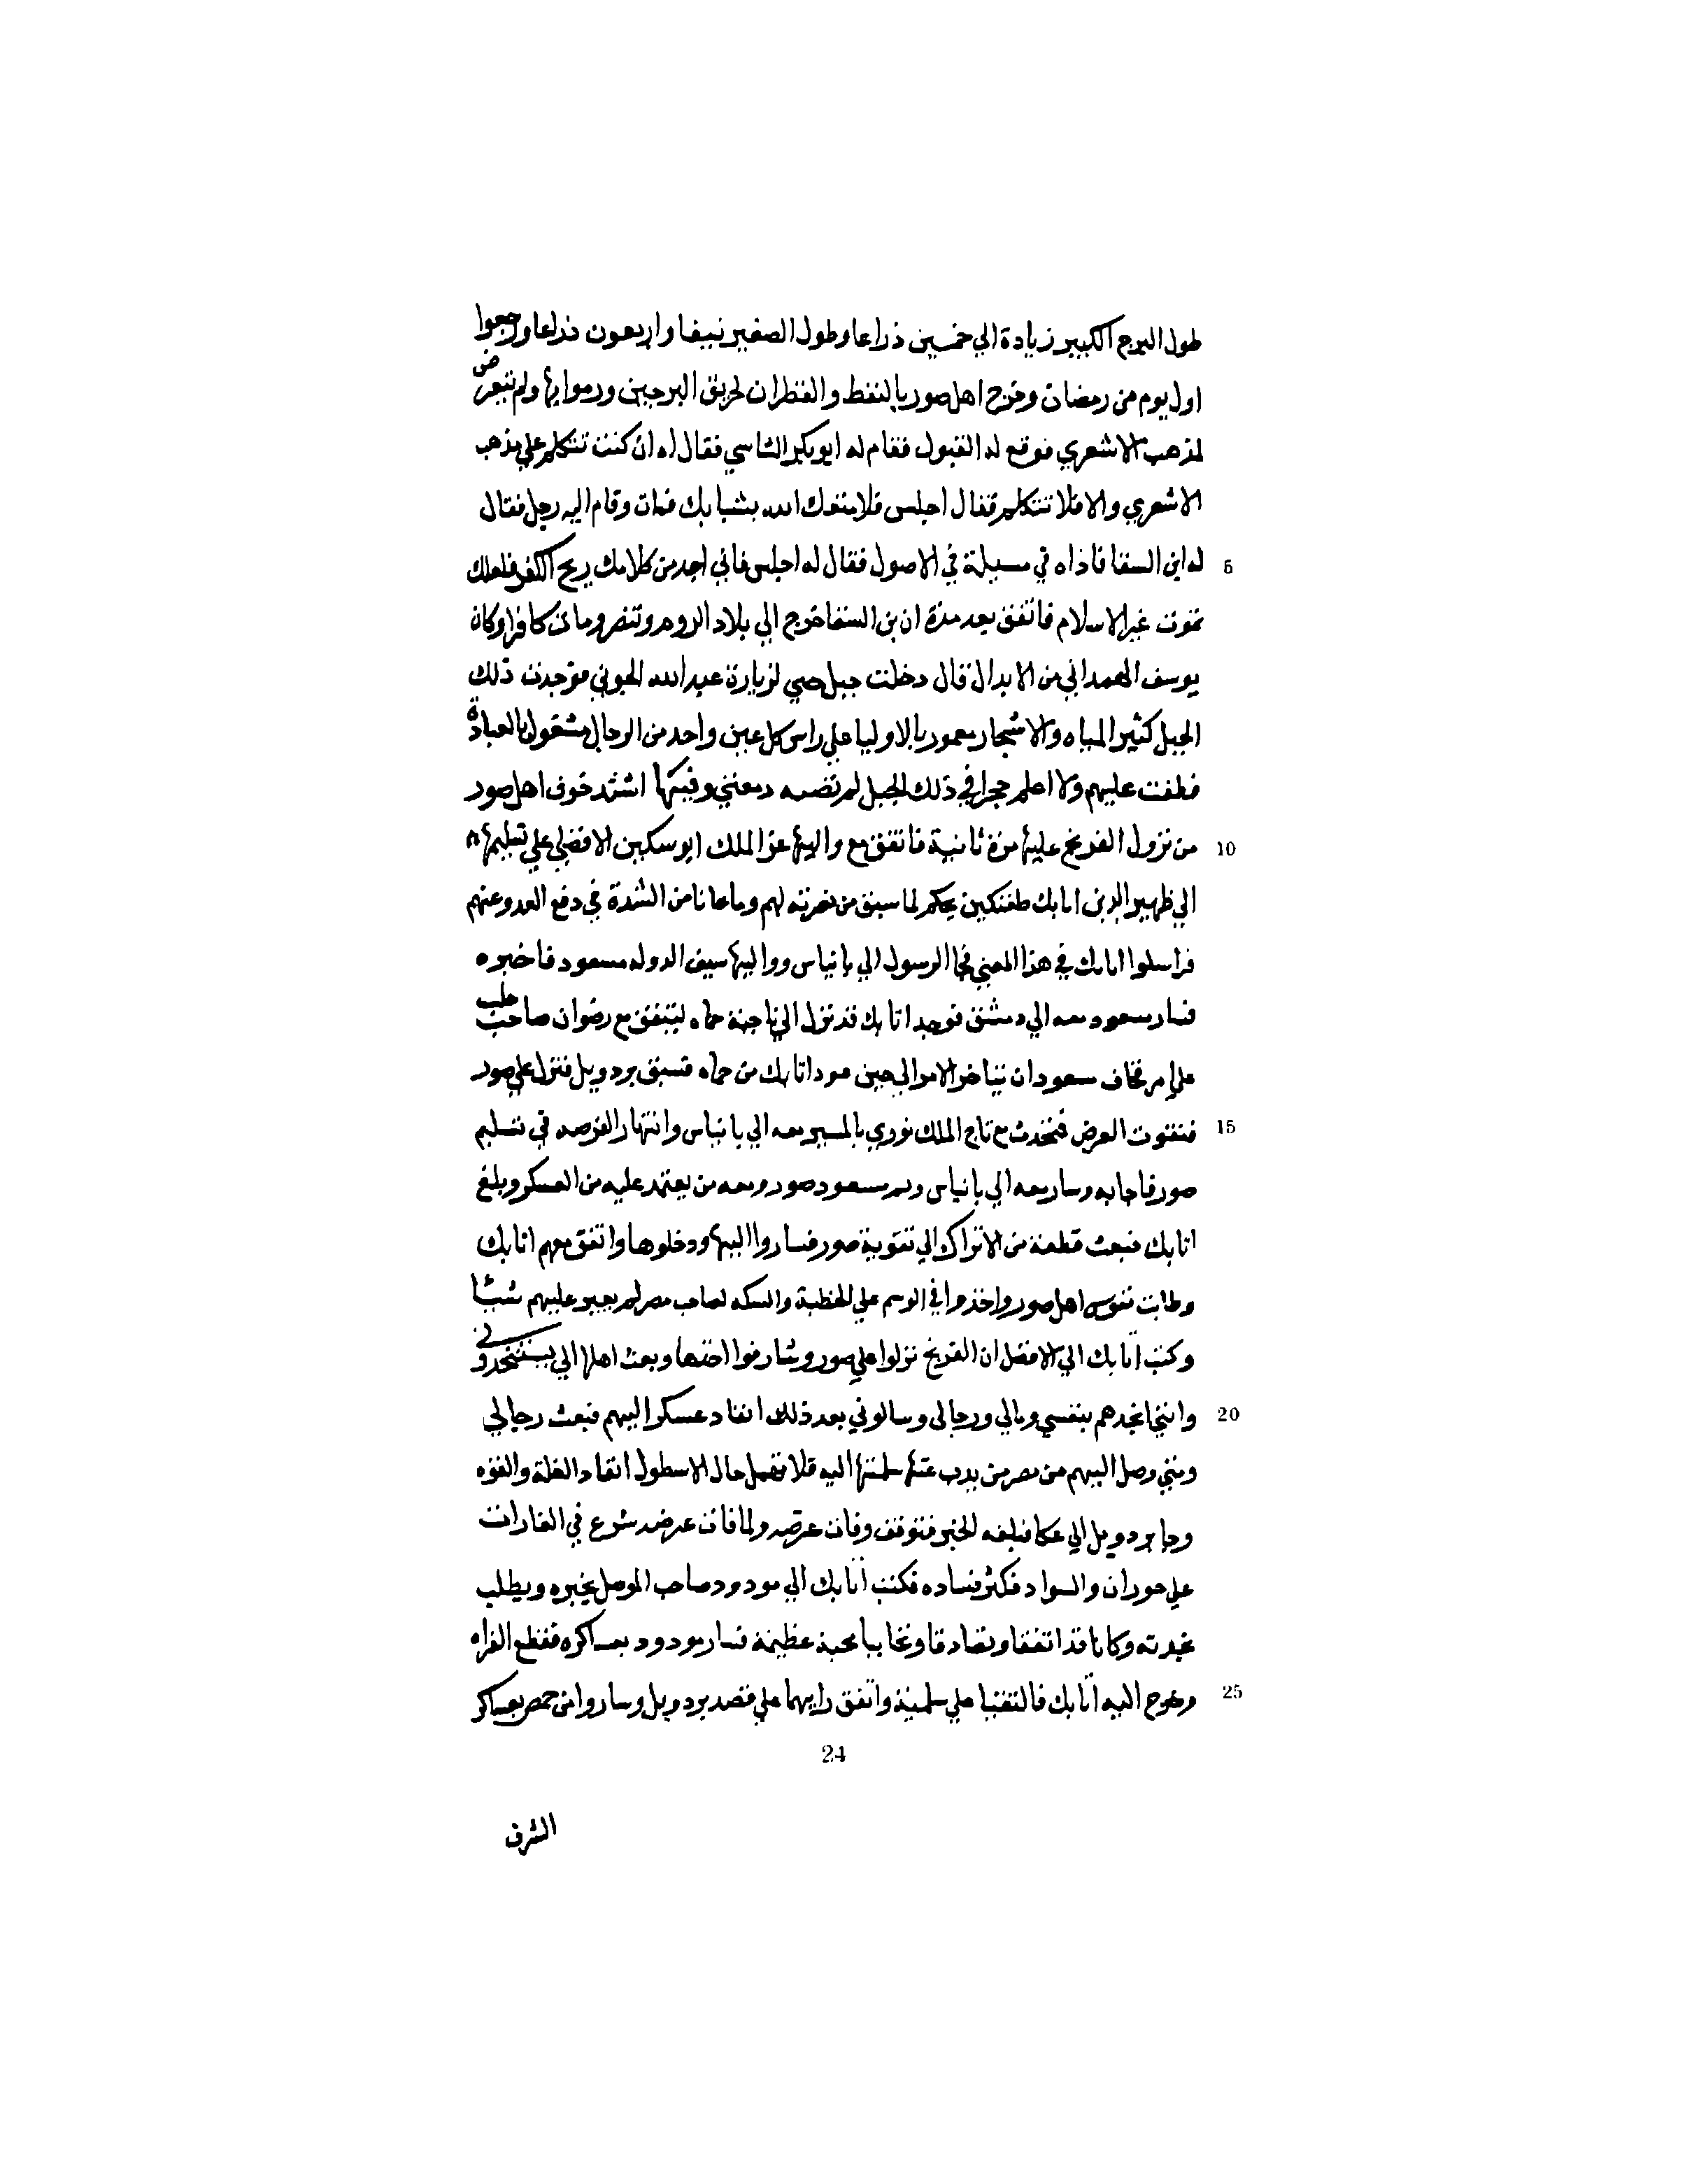 طول البرج الكبير زيادة الي خمسين ذراعا وطول الصغير نيفا واربعون ذراعا ورجعوا
اول يوم من رمضان وخرج اهل صور بالنفط والقطران لحريق البرجين ورموا بها ولم تتعرض
لمذهب الاشعري فوقع له القبول فقام له ابو بكر الشاسي فقال له ان كنت تتكلم علي مذهب
الاشعري والا فلا تتكلم فقال اجلس فلا متعك الله بشبابك فمات وقام اليه رجل فقال
5 له ابن السقا فاذاه في مسيلة في الاصول فقال له اجلس فاني اجد من كلامك ريح الكفر فلعلك
تموت غير الاسلام فاتفق بعد مدة ان بن السقا خرج الي بلاد الروم وتنصر ومات كافرا وكان
يوسف الهمداني من الابدال قال دخلت جبل لزيارة عبد الله الجوني فوجدت ذلك
الجبل كثير المياه والاشجار معمور بالاوليا علي راس كل عين واحد من الرجال مشغول بالعبادة
فطفت عليهم ولا اعلم حجرا في ذلك الجبل لم تصبه دمعتي وفيها اشتد خوف اهل صور
10 من نزول الفرنج عليها مرة ثانية فاتفق مع واليها عز الملك ابو سكين الافضلي علي تسليمها
الي ظهير الدين اتابك طغتكين بحكم لما سبق من نصرته لهم وما عانا من الشدة في دفع العدو عنهم
فراسلوا اتابك في هذا المعني فجا الرسول الي بانياس وواليها سيف الدوله مسعود فاخبره
فسار مسعود معه الي دمشق فوجد اتابك قد نزل الي ناحية حماه ليتفق مع رضوان صاحب حلب
علي امر فخاف مسعود ان يتاخر الامر الي حين عود اتابك من حماه فسبق بردويل فنزل علي صور
15 فتفوت الغرض فتحدث مع تاج الملك بوري بالمسير معه الي بانياس وانتهاز الفرصه في تسليم
صور فاجابه وسار معه الي بانياس مسعود صور ومعه من يعتمد عليه من العسكر وبلغ
اتابك فبعث قطعة من الاتراك الي تقوية صور فساروا اليها ودخلوها واتفق معهم اتابك
وطابت نفوس اهل صور واخذوا في الرسم علي الخطبة والسكه لصاحب مصر لم يغير عليهم شيا
وكتب اتابك الي الافضل ان الفرنج نزلوا علي صور وشارفوا اخذها وبعث اهلها الي يستنجدوني
20 وانني انجدهم بنفسي ومالي ورجالي وسالوني بعد ذلك انفاد عسكر اليهم فبعث رجالي
ومتي وصل اليهم من مصر من يدب عنها سلمتها اليه فلا تهمل حال الاسطول انفاد الغلة والقوه
وجا بردويل الي عكا فبلغه الخبر فتوقف وفات غرضه ولما فات غرضه شرع في الغارات
علي حوران والسواد فكثر فساده فكتب اتابك الي مودود صاحب الموصل يخبره ويطلب
نجدته وكانا قد اتفقا وتصادقا وتحاببا محبة عظيمة فسار مودود بعساكره فقطع الفراه
25 وخرج اليه اتابك فالتقيا علي سلمية واتفق رايهما علي قصد بردويل وساروا من حمص بعساكر
24
الشرق